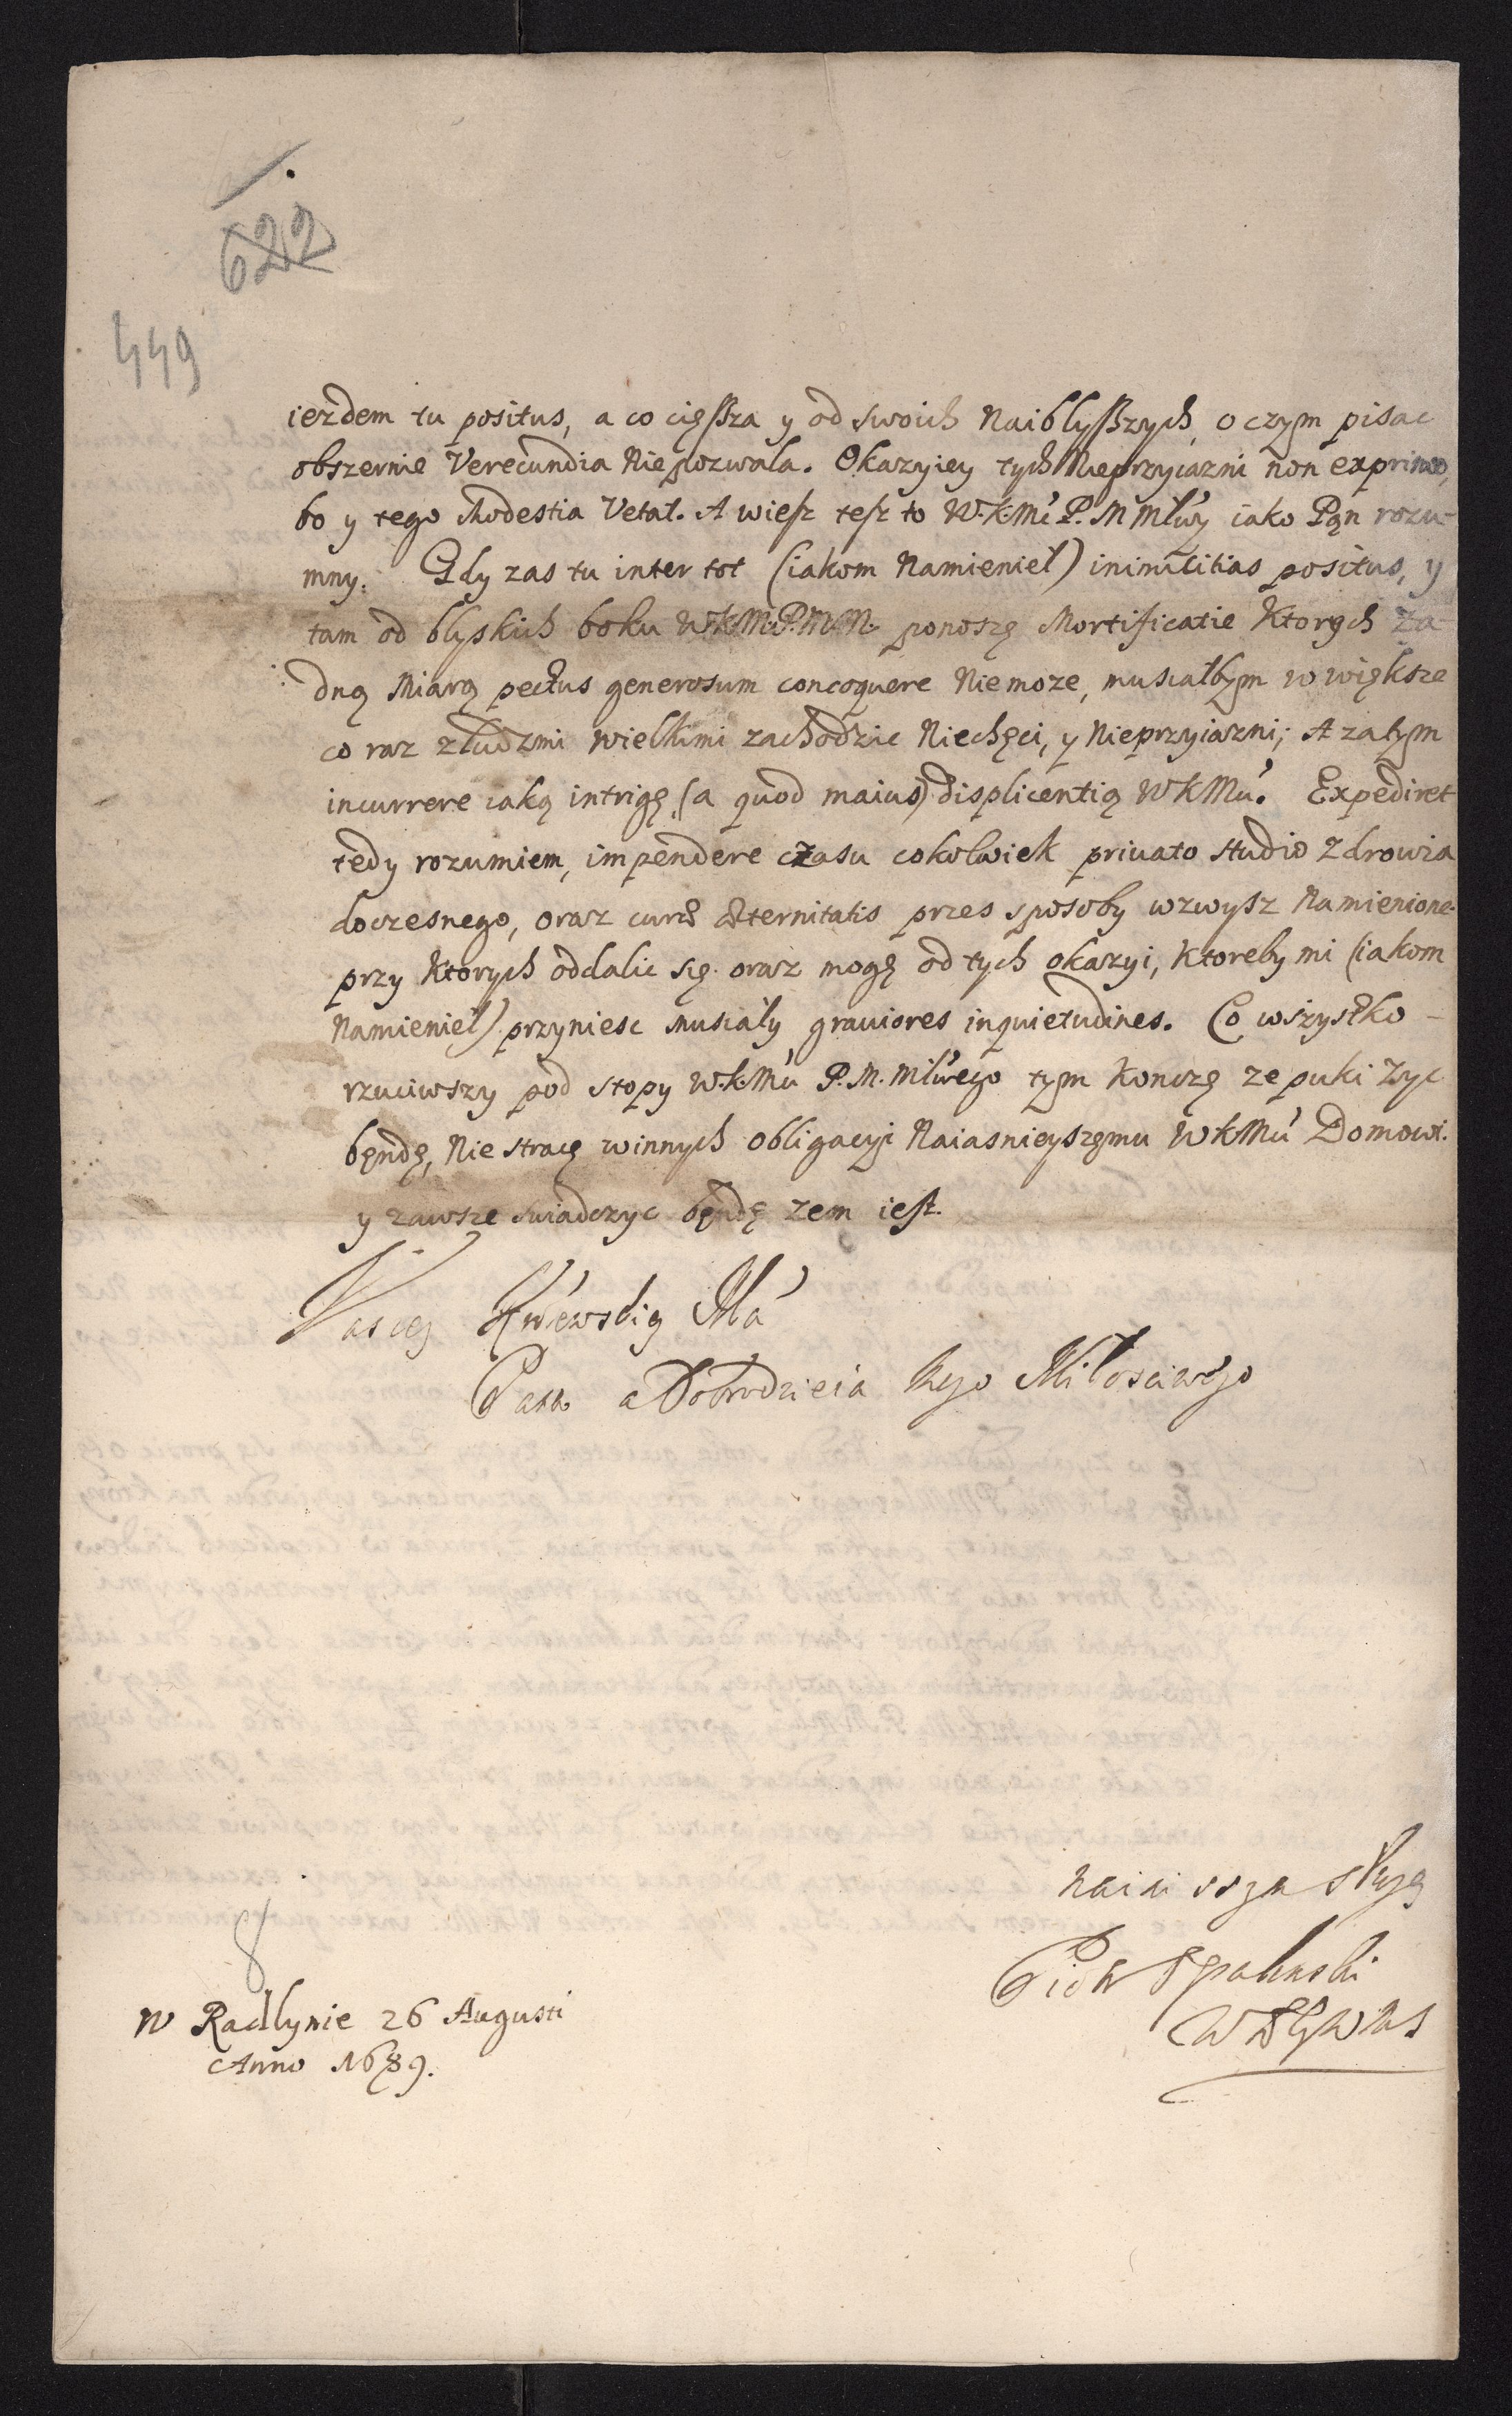 622
449
iezdem tu positus, a co cięßza y od swoich Naiblyßzych, o czym pisac
obszernie Verecundia Nie pozwala. Okazyiey tych Nieprzyiazni non exprimo,
bo y tego Modestia Vetat. A wiesz tesz to W.K.Mć P. M Mlwy iako Pąn rozu-
mny. Gdy zas tu inter tot (iakom Namieniel) inimicitias positus, y
tam od blyskich boku W.K.M.P.M.M. ponoszę Mortificatie Ktorych Za-
dną Miarą pectus generosum concoquere Niemoze, musiałbym w większe
co raz z ludzmi wielkimi zachodzic Niechęci, y Nieprzyiazni; A zatym
incurrere iaką intrigę, (a quod maius) displicentią WKMći. Expediret
tedy rozumiem, impendere czasu cokolwiek priuato studio Zdrowia
doczesnego, oraz curæ Æternitatis przes sposoby wzwysz Namienione.
przy Ktorych oddalic się oraz mogę od tych okazyi, Ktoreby mi (iakom
Namieniel) przyniesc Musialy grauiores inquietudines. Co wszystko -
rzuciwszy pod stopy W.K.Mći P. M. Mlwego tym Konczę ze puki Zyc
będę, Nie stracę winnych Obligacyi Naiasnieyszęmu WKMći Domowi.
y zawsze swiadczyc będę zem iest.
Waszey Krolewskiey Mci
Pana a Dobrodzieia Mego Miłosciwego
naini ssza sługa
Piotr Opalinski
8
W Radlynie 26 Augusti
Anno 1689.